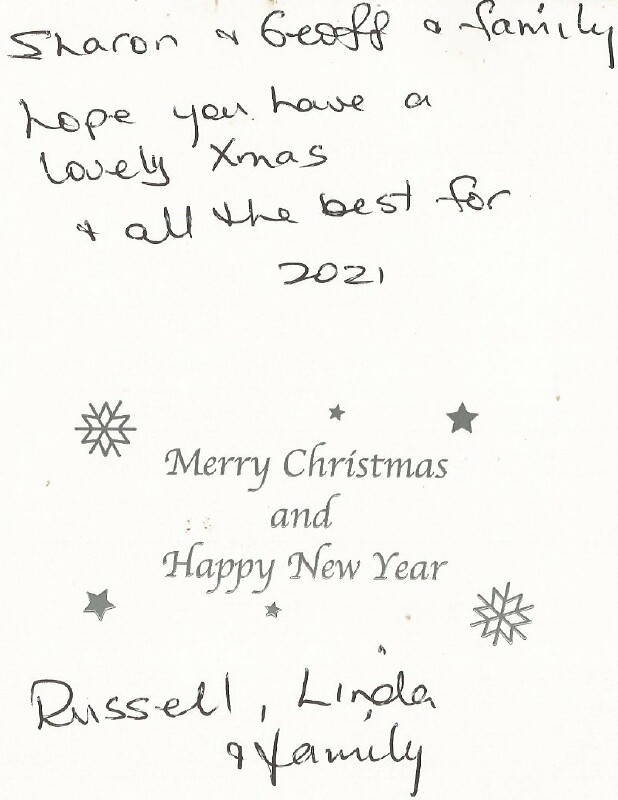 Sharon & Geoff & family
hope you have a
lovely Xmas
& all the best for
2021
Merry Christmas
and
Happy New Year
Russell, Linda
& family